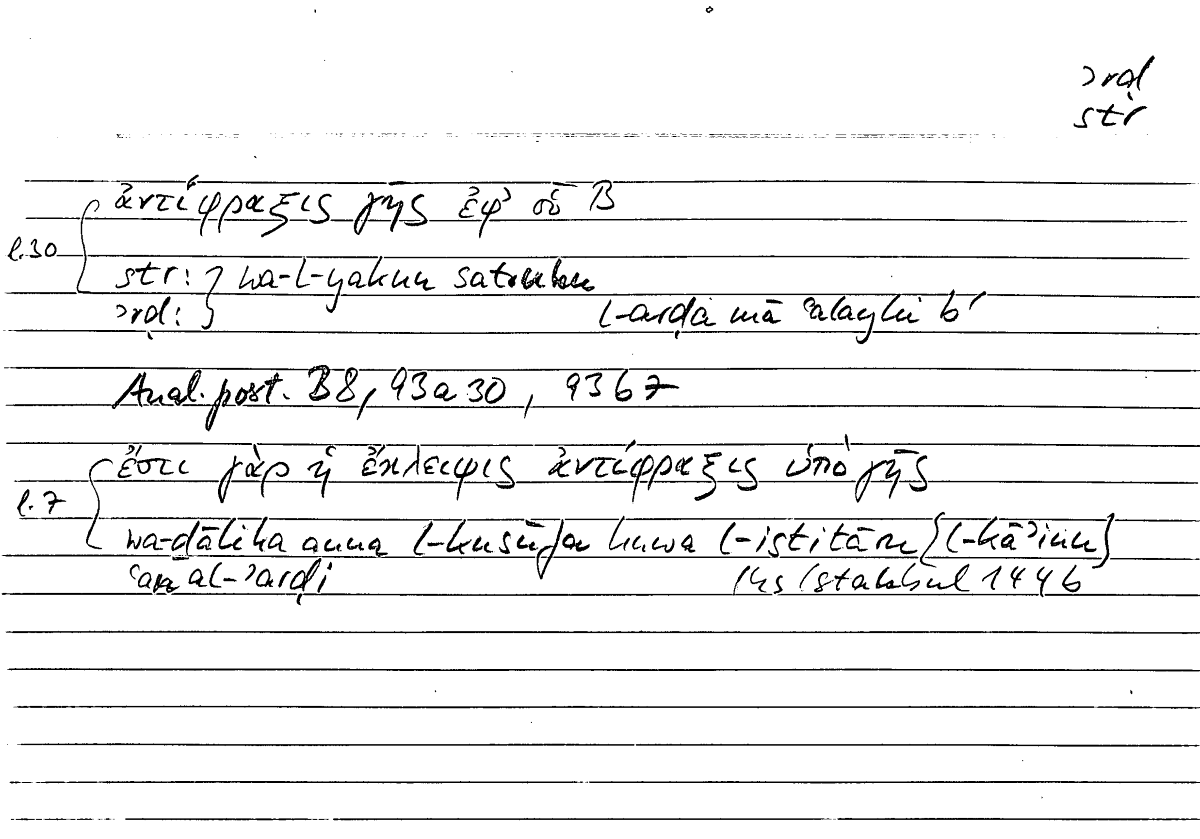 ʾrḍ
str
ἀντίφραξις γῆς ἐφ' οὗ Β
l.30
str: } wa-l-yakun satruhu
ʾrḍ: l-arḍa mā ʿalayhi b'
Anal. post. B8, 93a30, 93b7
ἔστι γὰρ ἡ ἔκλειψις ἀντίφραξις ὑπὸ γῆς
l.7
wa-ḏālika anna l-kusūfa huwa l-istitāru (l-kāʾinu)
ʿan al-ʾarḍi Hs Istanbul 144b